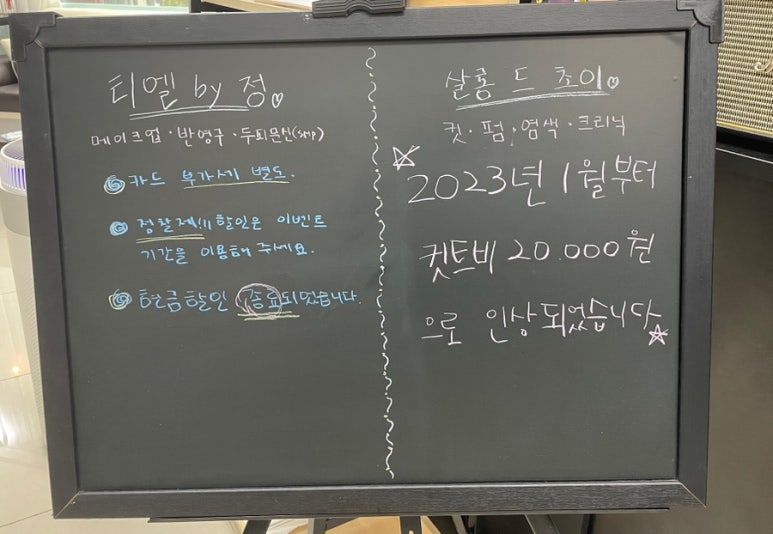 티엘 by 정
메이크업 · 반영구 · 두피문신(smp)
카드 부가세 별도.
정찰제!!! 할인은 이벤트
기간을 이용해 주세요.
현금할인 종료되었습니다.
살롱 드 초이
컷 · 펌 · 염색 · 크리닉
2023년 1월부터
컷트비 20.000원
으로 인상되었습니다